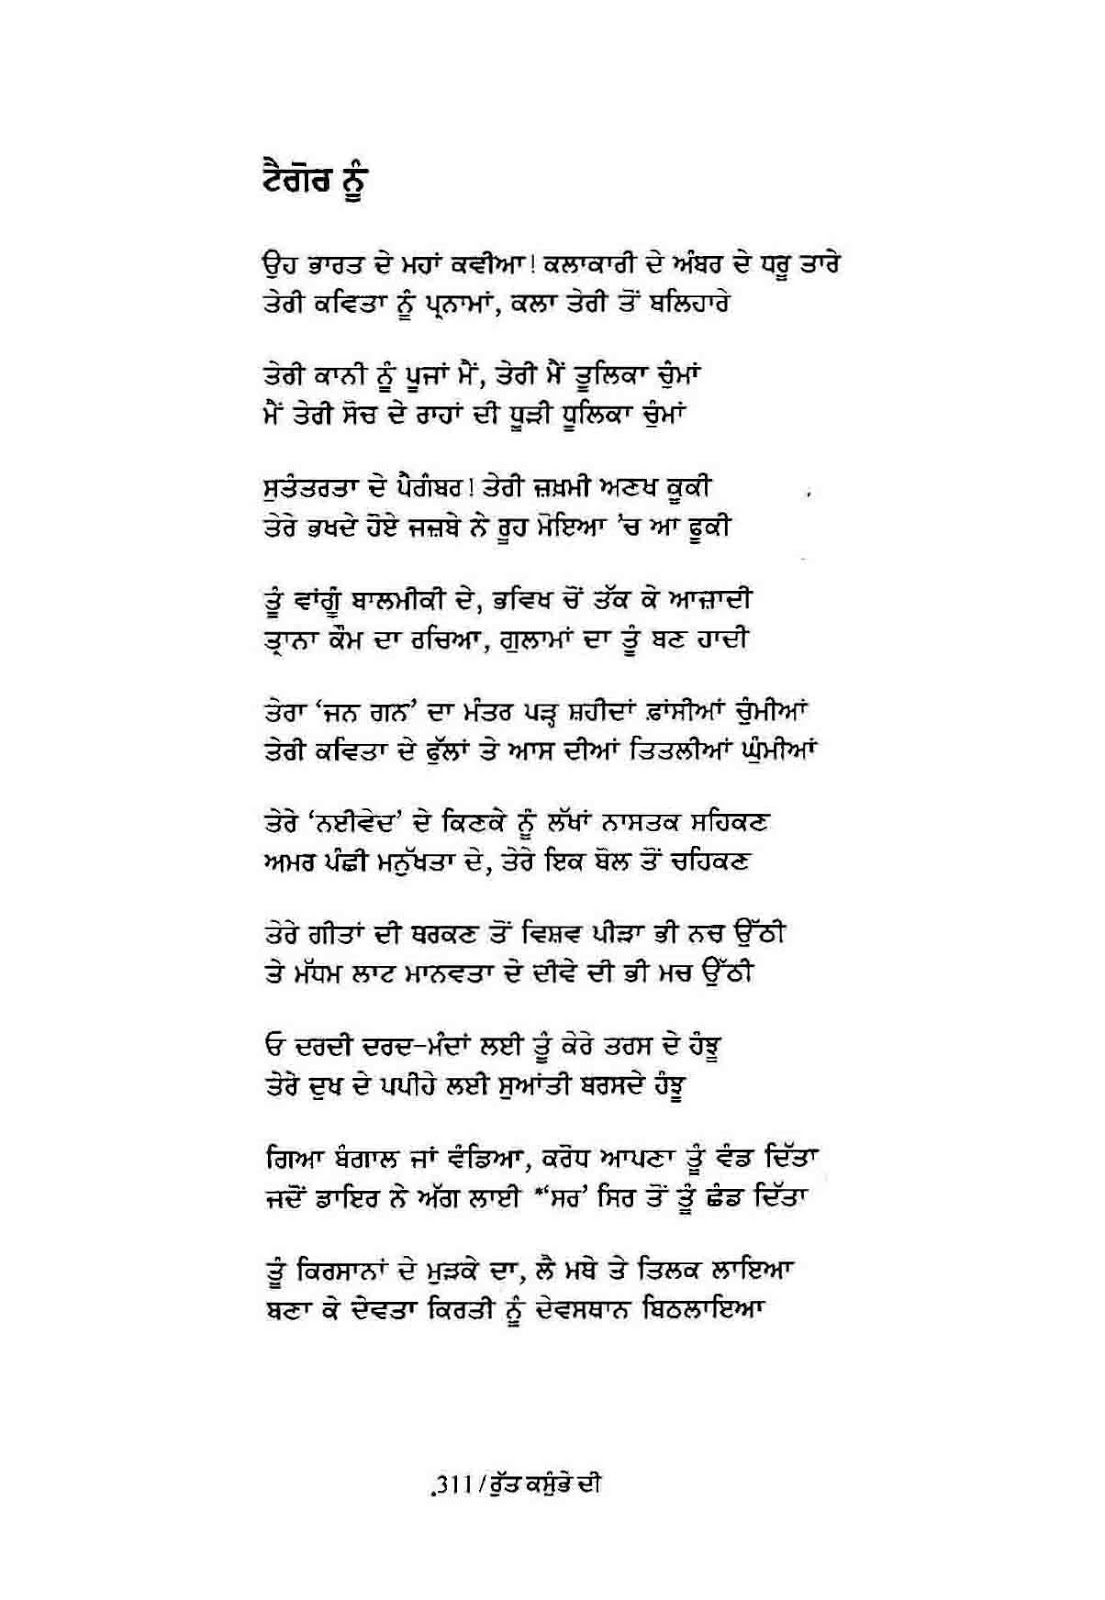 ਟੈਗੋਰ ਨੂੰ
ਉਹ ਭਾਰਤ ਦੇ ਮਹਾਂ ਕਵੀਆ! ਕਲਾਕਾਰੀ ਦੇ ਅੰਬਰ ਦੇ ਧਰੂ ਤਾਰੇ
ਤੇਰੀ ਕਵਿਤਾ ਨੂੰ ਪ੍ਰਨਾਮਾਂ, ਕਲਾ ਤੇਰੀ ਤੋਂ ਬਲਿਹਾਰੇ
ਤੇਰੀ ਕਾਨੀ ਨੂੰ ਪੂਜਾਂ ਮੈਂ, ਤੇਰੀ ਮੈਂ ਤੂਲਿਕਾ ਚੁੰਮਾਂ
ਮੈਂ ਤੇਰੀ ਸੋਚ ਦੇ ਰਾਹਾਂ ਦੀ ਧੂੜੀ ਧੂਲਿਕਾ ਚੁੰਮਾਂ
ਸੁਤੰਤਰਤਾ ਦੇ ਪੈਗੰਬਰ! ਤੇਰੀ ਜ਼ਖ਼ਮੀ ਅਣਖ ਕੂਕੀ
ਤੇਰੇ ਭਖਦੇ ਹੋਏ ਜਜ਼ਬੇ ਨੇ ਰੂਹ ਮੋਇਆ 'ਚ ਆ ਫੂਕੀ
ਤੂੰ ਵਾਂਗੂੰ ਬਾਲਮੀਕੀ ਦੇ, ਭਵਿਖ ਚੋਂ ਤੱਕ ਕੇ ਆਜ਼ਾਦੀ
ਤ੍ਰਾਨਾ ਕੌਮ ਦਾ ਰਚਿਆ, ਗੁਲਾਮਾਂ ਦਾ ਤੂੰ ਬਣ ਹਾਦੀ
ਤੇਰਾ 'ਜਨ ਗਨ' ਦਾ ਮੰਤਰ ਪੜ੍ਹ ਸ਼ਹੀਦਾਂ ਫ਼ਾਂਸੀਆਂ ਚੁੰਮੀਆਂ
ਤੇਰੀ ਕਵਿਤਾ ਦੇ ਫੁੱਲਾਂ ਤੇ ਆਸ ਦੀਆਂ ਤਿਤਲੀਆਂ ਘੁੰਮੀਆਂ
ਤੇਰੇ 'ਨਈਵੇਦ' ਦੇ ਕਿਣਕੇ ਨੂੰ ਲੱਖਾਂ ਨਾਸਤਕ ਸਹਿਕਣ
ਅਮਰ ਪੰਛੀ ਮਨੁੱਖਤਾ ਦੇ, ਤੇਰੇ ਇਕ ਬੋਲ ਤੋਂ ਚਹਿਕਣ
ਤੇਰੇ ਗੀਤਾਂ ਦੀ ਥਰਕਣ ਤੋਂ ਵਿਸ਼ਵ ਪੀੜਾ ਭੀ ਨਚ ਉੱਠੀ
ਤੇ ਮੱਧਮ ਲਾਟ ਮਾਨਵਤਾ ਦੇ ਦੀਵੇ ਦੀ ਭੀ ਮਚ ਉੱਠੀ
ਓ ਦਰਦੀ ਦਰਦ-ਮੰਦਾਂ ਲਈ ਤੂੰ ਕੇਰੇ ਤਰਸ ਦੇ ਹੰਝੂ
ਤੇਰੇ ਦੁਖ ਦੇ ਪਪੀਹੇ ਲਈ ਸੁਆਂਤੀ ਬਰਸਦੇ ਹੰਝੂ
ਗਿਆ ਬੰਗਾਲ ਜਾਂ ਵੰਡਿਆ, ਕਰੋਧ ਆਪਣਾ ਤੂੰ ਵੰਡ ਦਿੱਤਾ
ਜਦੋਂ ਡਾਇਰ ਨੇ ਅੱਗ ਲਾਈ *'ਸਰ' ਸਿਰ ਤੋਂ ਤੂੰ ਛੰਡ ਦਿੱਤਾ
ਤੂੰ ਕਿਰਸਾਨਾਂ ਦੇ ਮੁੜਕੇ ਦਾ, ਲੈ ਮਥੇ ਤੇ ਤਿਲਕ ਲਾਇਆ
ਬਣਾ ਕੇ ਦੇਵਤਾ ਕਿਰਤੀ ਨੂੰ ਦੇਵਸਥਾਨ ਬਿਠਲਾਇਆ
311/ਰੁੱਤ ਕਸੁੰਭੇ ਦੀ